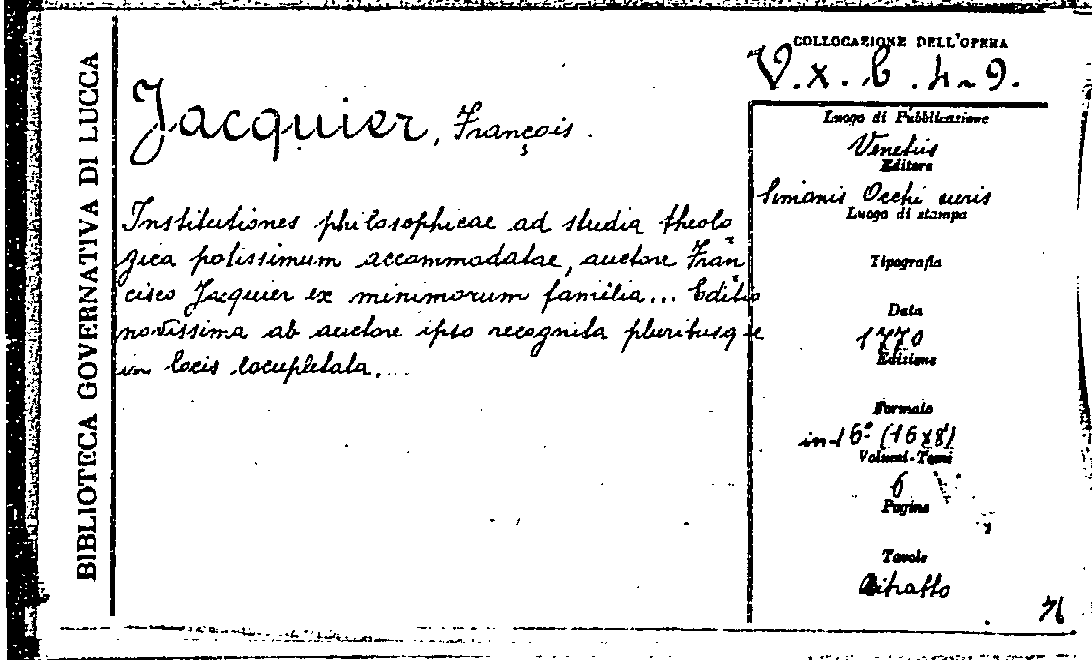 BIBLIOTECA GOVERNATIVA DI LUCCA
Jacquier, François.
Institutiones philosophicae ad studia theolo
gica potissimum accommodatae, auctore Fran
cisco Jacquier ex minimorum familia... Editio
novissima ab auctore ipso recognita pluribusque
in locis locupletata....
COLLOCAZIONE DELL'OPERA
V.x.b.4-9.
Luogo di Pubblicazione
Venetiis
Editore
Simonis Occhi
Luogo di stampa
Tipografia
Data
1770
Edizione
Formato
in-16° (16x8)
Volumi-Tomi
6
Pagine
Tavole
Ritratto